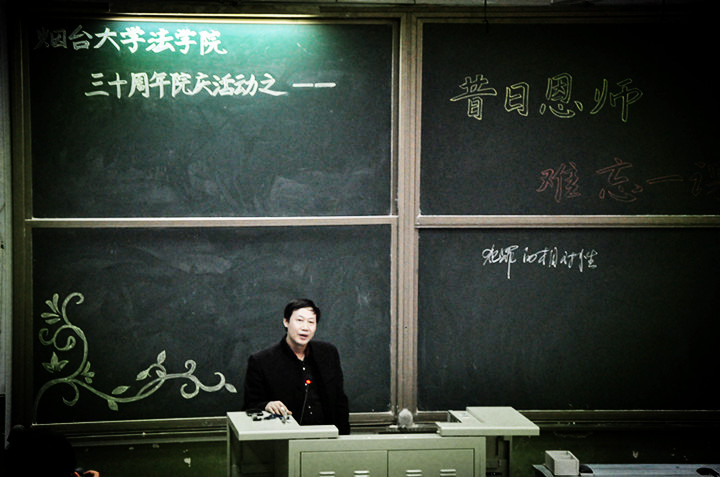 烟台大学法学院
三十周年院庆活动之——
昔日恩师
难忘一课
犯罪的相对性